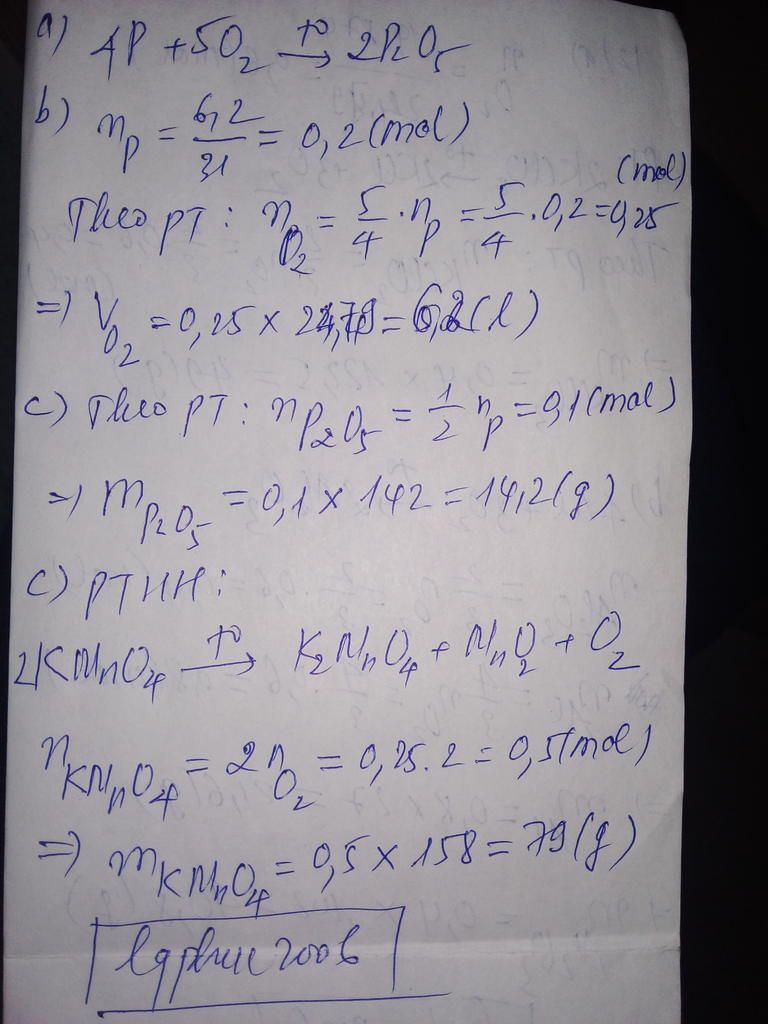 a) 4P + 5O₂ →(t⁰) 2P₂O₅
b) n_P = 6,2/31 = 0,2 (mol)
Theo PT: n_O₂ = 5/4 . n_P = 5/4 . 0,2 = 0,25 (mol)
=> V_O₂ = 0,25 × 24,79 = 6,2 (l)
c) Theo PT: n_P₂O₅ = 1/2 n_P = 0,1 (mol)
=> m_P₂O₅ = 0,1 × 142 = 14,2 (g)
c) PTHH:
2KMnO₄ →(t⁰) K₂MnO₄ + MnO₂ + O₂
n_KMnO₄ = 2n_O₂ = 0,25 . 2 = 0,5 (mol)
=> m_KMnO₄ = 0,5 × 158 = 79 (g)